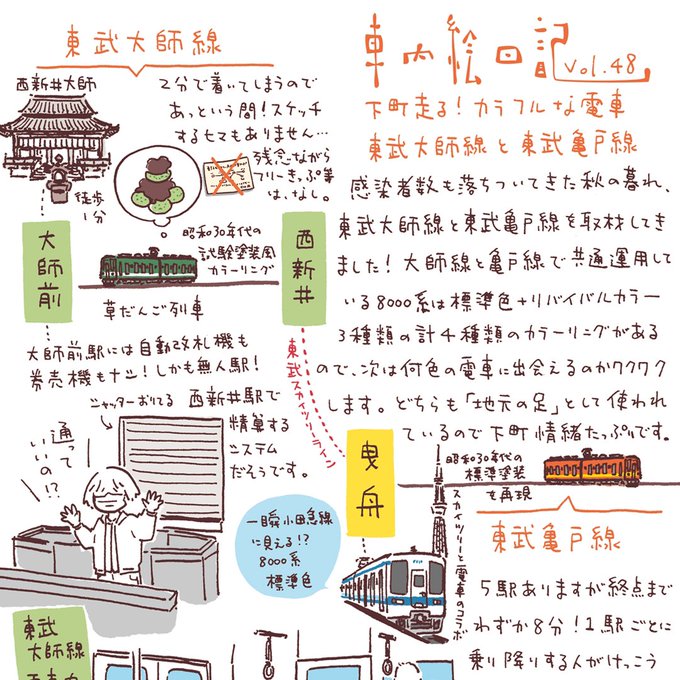 車内絵日記
vol.48
下町走る！カラフルな電車
東武大師線と東武亀戸線
感染者数も落ちついてきた秋の暮れ、
東武大師線と東武亀戸線を取材してき
ました！大師線と亀戸線で共通運用して
いる8000系は標準色+リバイバルカラー
3種類の計4種類のカラーリングがある
ので、次は何色の電車に出会えるのかワクワク
します。どちらも「地元の足」として使われ
ているので下町情緒たっぷりです。
東武大師線
西新井大師
2分で着いてしまうので
あっという間！スケッチ
するヒマもありません…
残念ながら
フリーきっぷ等
は、なし。
徒歩
1分
大師前
昭和30年代の
試験塗装風
カラーリング
西新井
草だんご列車
大師前駅には自動改札機も
券売機もナシ！しかも無人駅！
シャッターおりてる
西新井駅で
精算する
システム
だそうです。
通って
いいの!?
東武スカイツリーライン
曳舟
昭和30年代の
標準塗装
を再現
東武亀戸線
スカイツリーと電車のコラボ
一瞬小田急線
に見える!?
8000系
標準色
5駅ありますが終点まで
わずか8分！1駅ごとに
乗り降りする人がけっこう
東武
大師線